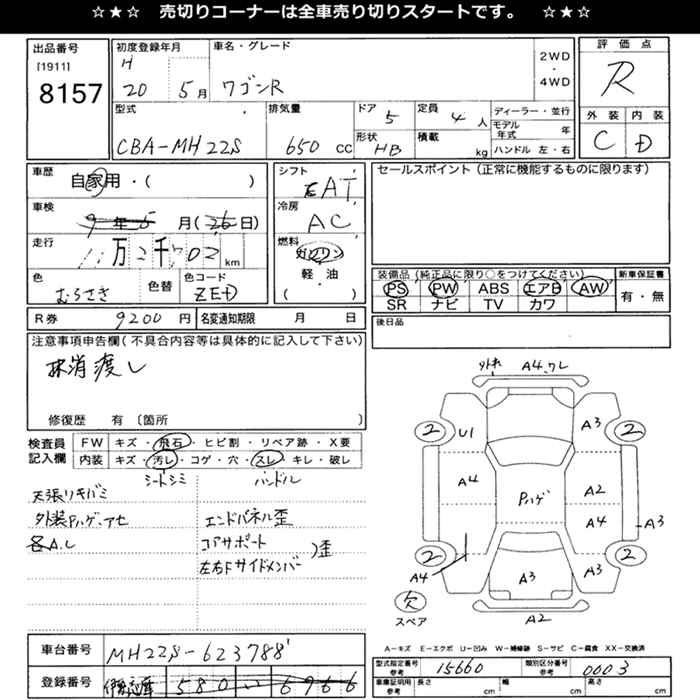 ☆★☆ 売切りコーナーは全車売り切りスタートです。 ☆★☆
出品番号
[1911]
8157
初度登録年月
H
20 5月
車名・グレード
ワゴンR
2WD
・
4WD
評価点
R
外装 内装
C D
型式
CBA-MH22S
排気量
650 cc
ドア 5
形状 HB
定員 4 人
積載 kg
ディーラー・並行
モデル年式 年
ハンドル 左・右
車歴
自家用・( )
車検
9年5月(26日)
走行
11万2千702 km
色
むらさき
色替
色コード
ZED
シフト
FAT
冷房
AC
燃料
ガソリン
軽・油
( )
セールスポイント(正常に機能するものに限ります)
装備品(純正品に限り○をつけてください)
PS PW ABS エアB AW
SR ナビ TV カワ
新車保証書
有・無
R券 9200円
名変通知期限 月 日
後日品
注意事項申告欄(不具合内容等は具体的に記入して下さい)
抹消渡し
修復歴 有〔箇所 〕
検査員
記入欄
FW キズ・飛石・ヒビ割・リペア跡・X要
内装 キズ・汚レ・コゲ・穴・スレ・キレ・破レ
シートシミ ハンドル
天張リキバミ
外装Pハゲ、アセ
各A.L
エンドパネル歪
コアサポート
左右Fサイドメンバー
)歪
外れ A4.ワレ
2 U1 A3 2
A4 Pハゲ A2
A4 A3
2 A4 A3 A3 2
欠
スペア
A2
A-キズ E-エクボ U-凹み W-補修跡 S-サビ C-腐食 XX-交換済
車台番号 MH22S-623788
登録番号 580 い 6966
型式指定番号 参考 15660
類別区分番号 参考 0003
車庫証明用 参考 長さ cm 幅 cm 高さ cm